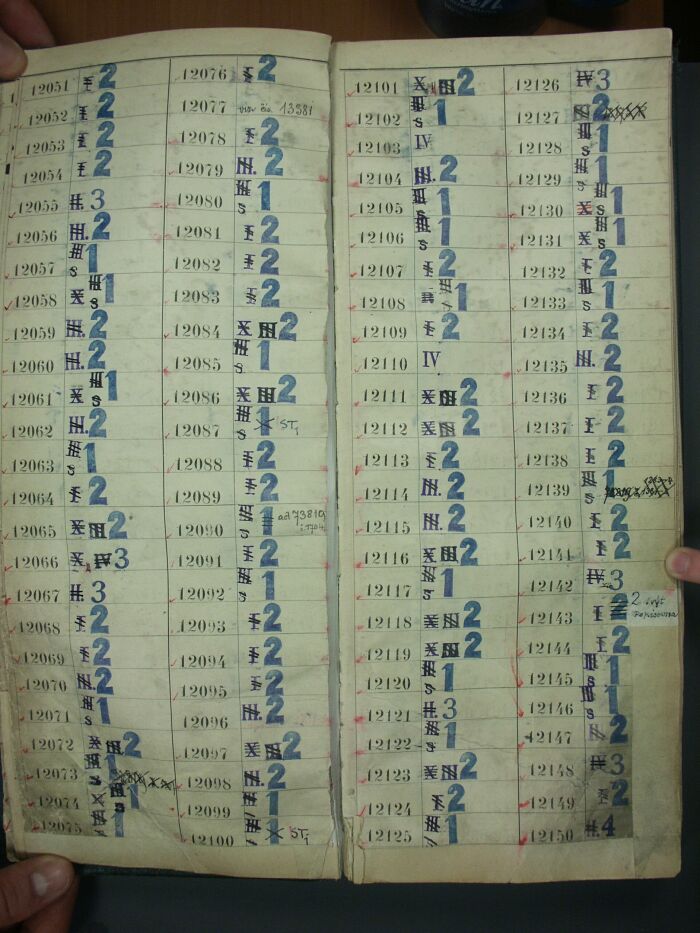 12051 I 2
12052 I 2
12053 I 2
12054 I 2
12055 II. 3
12056 III. 2
12057 III s 1
12058 X III s 1
12059 III. 2
12060 III. 2
12061 X III s 1
12062 III. 2
12063 III s 1
12064 I 2
12065 X III 2
12066 X IV 3
12067 II. 3
12068 I 2
12069 I 2
12070 III. 2
12071 III s 1
12072 X III 2
12073 III s 1
12074 X III s 1
12075 1
12076 I 2
12077 13381
12078 I 2
12079 III. 2
12080 III s 1
12081 I 2
12082 I 2
12083 I 2
12084 X III 2
12085 III s 1
12086 X III 2
12087 III s 1 ST1
12088 I 2
12089 I 2
12090 III s 1 ad 73810
12091 I 2
12092 III s 1
12093 I 2
12094 I 2
12095 I 2
12096 III. 2
12097 X III 2
12098 III. 2
12099 III 1
12100 III 1 ST1
12101 X III 2
12102 III s 1
12103 IV
12104 III. 2
12105 III s 1
12106 III s 1
12107 I 2
12108 II III s 1
12109 I 2
12110 IV
12111 X III 2
12112 X III 2
12113 I 2
12114 III. 2
12115 III. 2
12116 X III 2
12117 III s 1
12118 X III 2
12119 X III 2
12120 III s 1
12121 II. 3
12122 III s 1
12123 X III 2
12124 I 2
12125 III 1
12126 IV 3
12127 2
12128 III s 1
12129 III s 1
12130 X III s 1
12131 X III s 1
12132 I 2
12133 III s 1
12134 I 2
12135 III. 2
12136 I 2
12137 I 2
12138 I 2
12139 III s 1
12140 I 2
12141 I 2
12142 IV 3
12143 I 2 2
12144 I 2
12145 III s 1
12146 III s 1
12147 2
12148 IV 3
12149 I 2
12150 II. 4